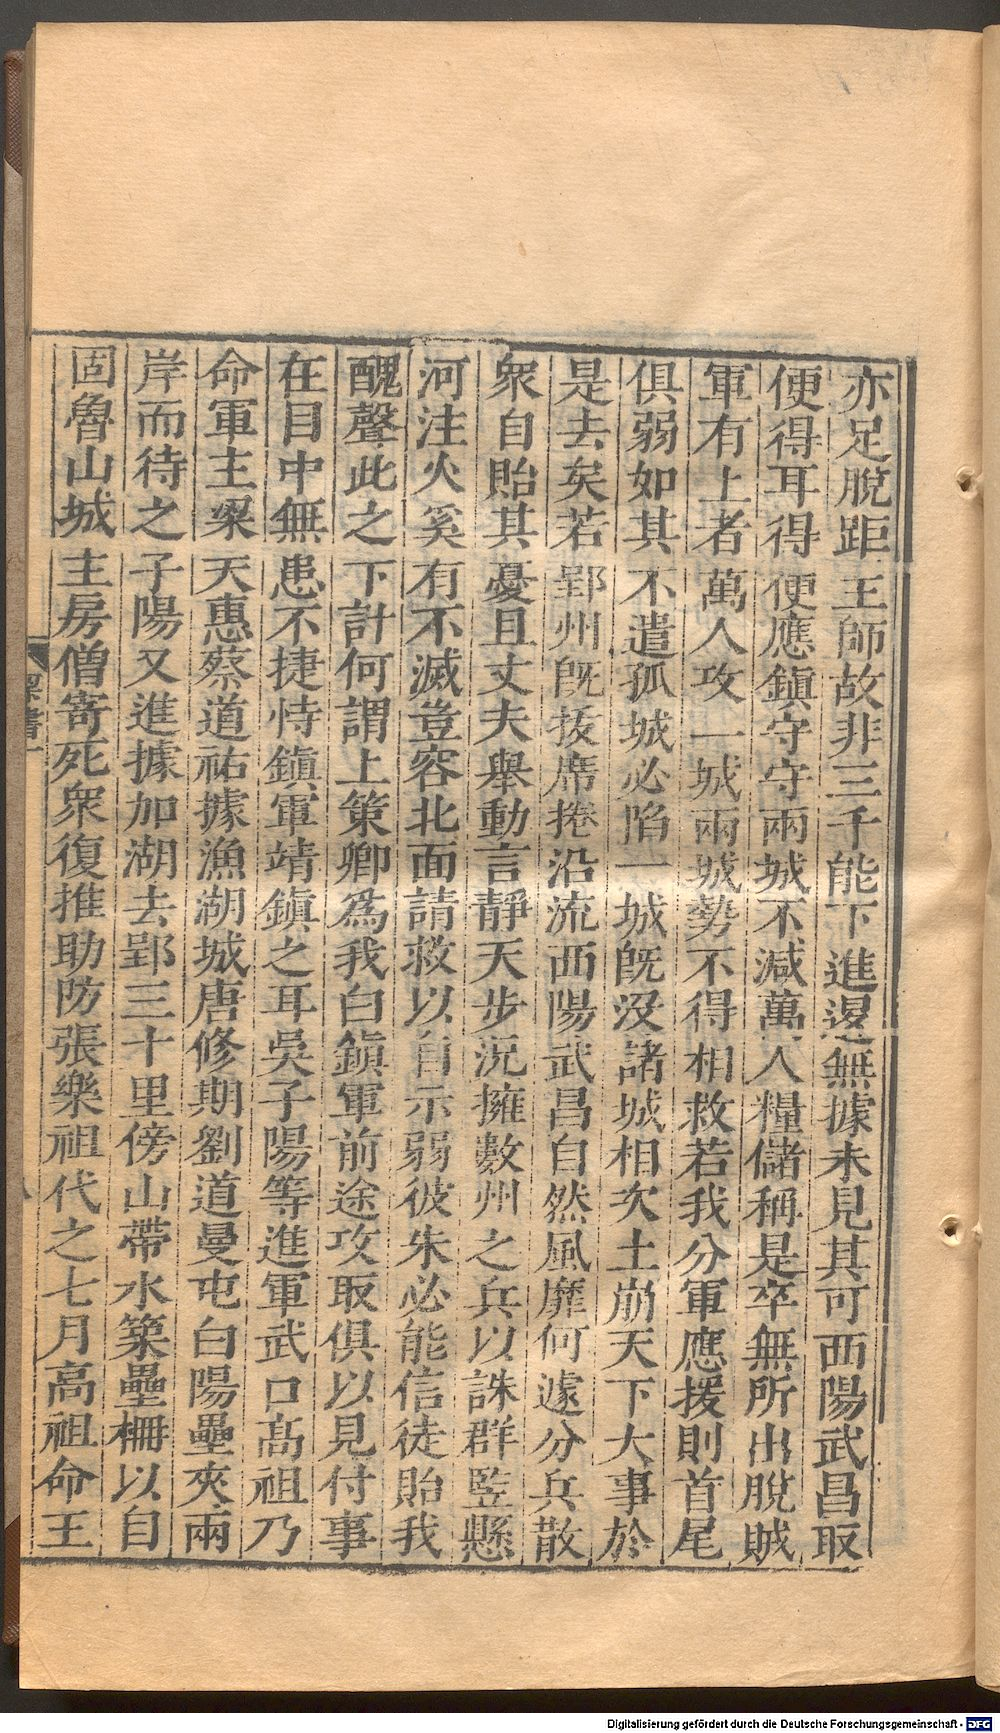 亦足脫距王師故非三千能下進退無據未見其可西陽武昌取
便得耳得便應鎮守守兩城不減萬人糧儲稱是卒無所出脫賊
軍有上者萬人攻一城兩城勢不得相救若我分軍應援則首尾
俱弱如其不遣孤城必陷一城旣没諸城相次土崩天下大事於
是去矣若郢州旣拔席捲沿流西陽武昌自然風靡何遽分兵散
衆自貽其憂且丈夫舉動言靜天步況擁數州之兵以誅群監懸
河注火奚有不滅豈容北面請救以自示弱彼未必能信徒貽我
醜聲此之下計何謂上策卿爲我白鎮軍前途攻取俱以見付事
在目中無患不捷恃鎮軍靖鎮之耳吳子陽等進軍武口高祖乃
命軍主梁天惠蔡道祐據漁湖城唐修期劉道曼屯白陽壘夾兩
岸而待之子陽又進據加湖去郢三十里傍山帶水築壘柵以自
固魯山城主房僧寄死衆復推助防張樂祖代之七月高祖命王
梁書一
Digitalisierung gefördert durch die Deutsche Forschungsgemeinschaft - DFG